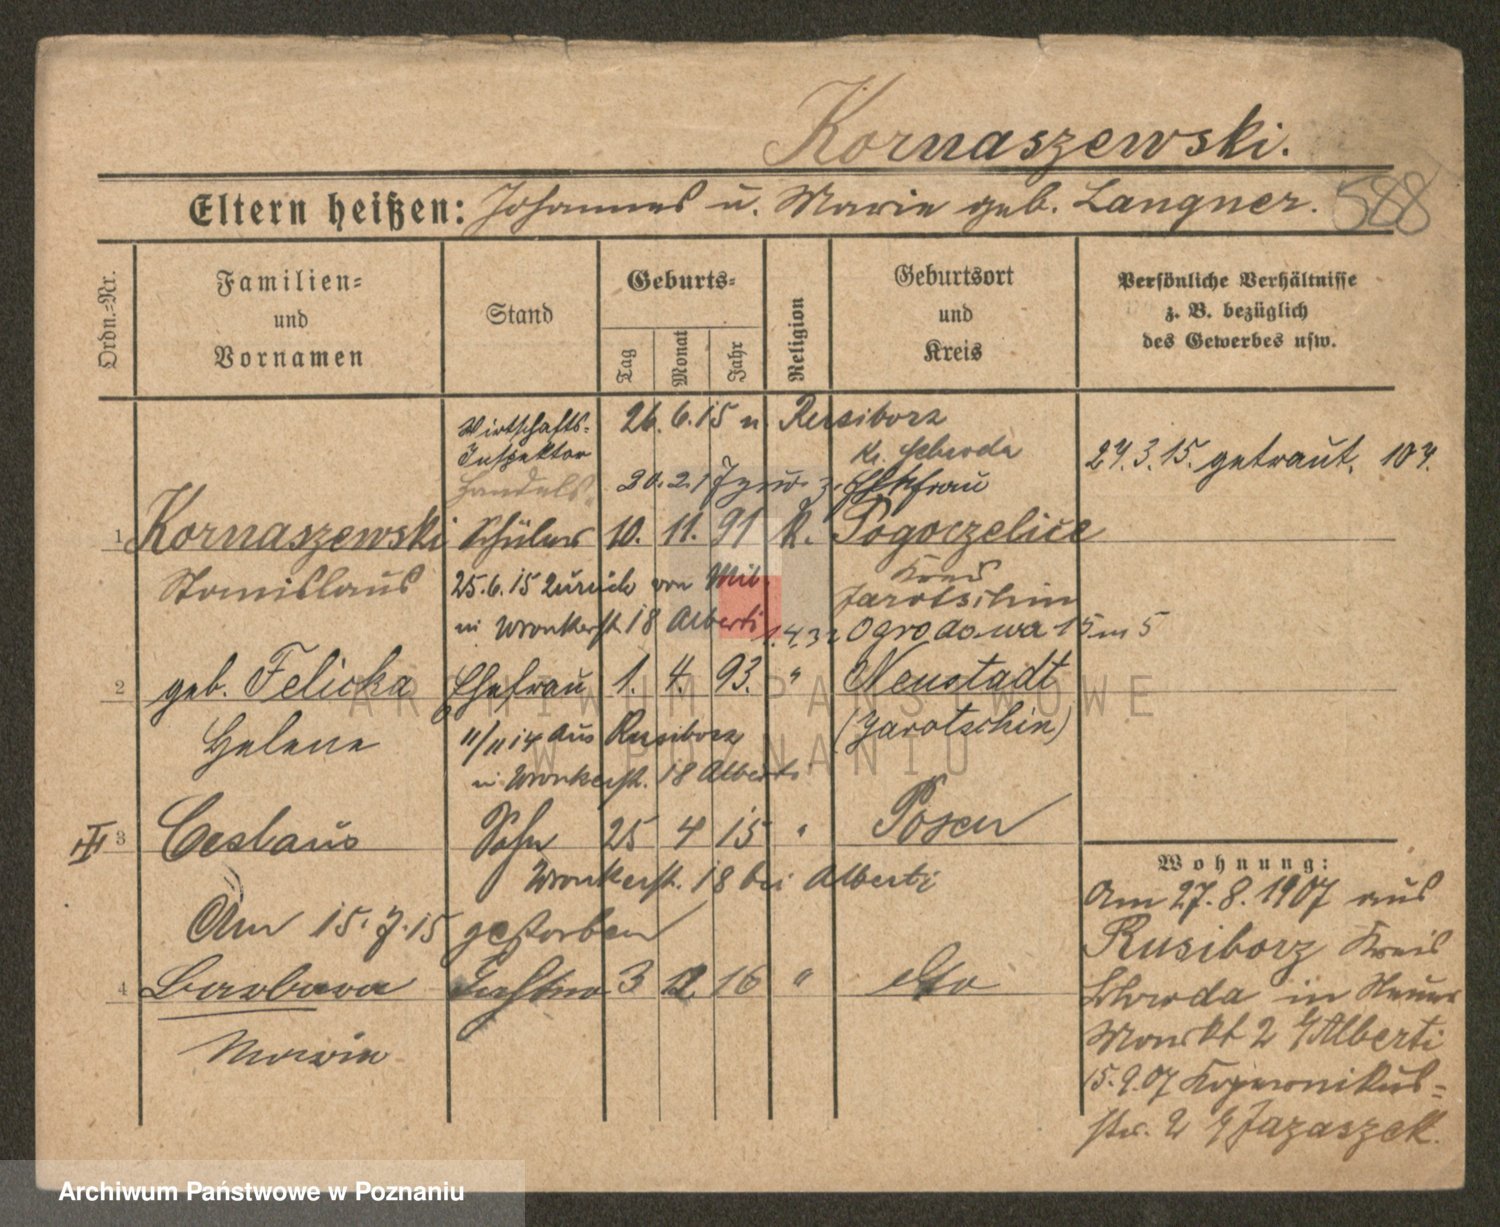 Kornaszewski.
Eltern heißen: Johannes u. Marie geb. Langner. 588
Ordn.-Nr.
Familien- und Vornamen
Stand
Geburts-
Tag Monat Jahr
Religion
Geburtsort und Kreis
Persönliche Verhältnisse
z. B. bezüglich
des Gewerbes usw.
Wirtschafts- 26.6.15 n. Rusiborz
Inspektor Kr. Schroda
Handels 20.2.17 Ehefrau
24.3.15. getraut. 104.
1 Kornaszewski Schüler 10. 11. 91 k. Pogorzelice
Stanislaus 25.6.15 zurück von Mil. Kreis
Jarotschin
in Wronkerst 18 Alberti 1.4.32 Ogrodowa 15 m 5
2 geb. Felicka Ehefrau 1. 4. 93. " Neustadt
Helene 11/11 14 aus Rusiborz (Jarotschin)
in Wronkerst. 18 Alberti
III 3 Ceslaus Sohn 25 4 15 " Posen
Wronkerst. 18 bei Alberti
Am 15.7.15 gestorben
4 Barbara Tochter 3 12 16 " dto
Maria
Wohnung:
Am 27.8.1907 aus
Rusiborz Kreis
Schroda in Neuer
Markt 2 b/ Alberti
15.9.07 Kopernikus-
str. 2 b/ Jazaszek.
ARCHIWUM PAŃSTWOWE
W POZNANIU
Archiwum Państwowe w Poznaniu